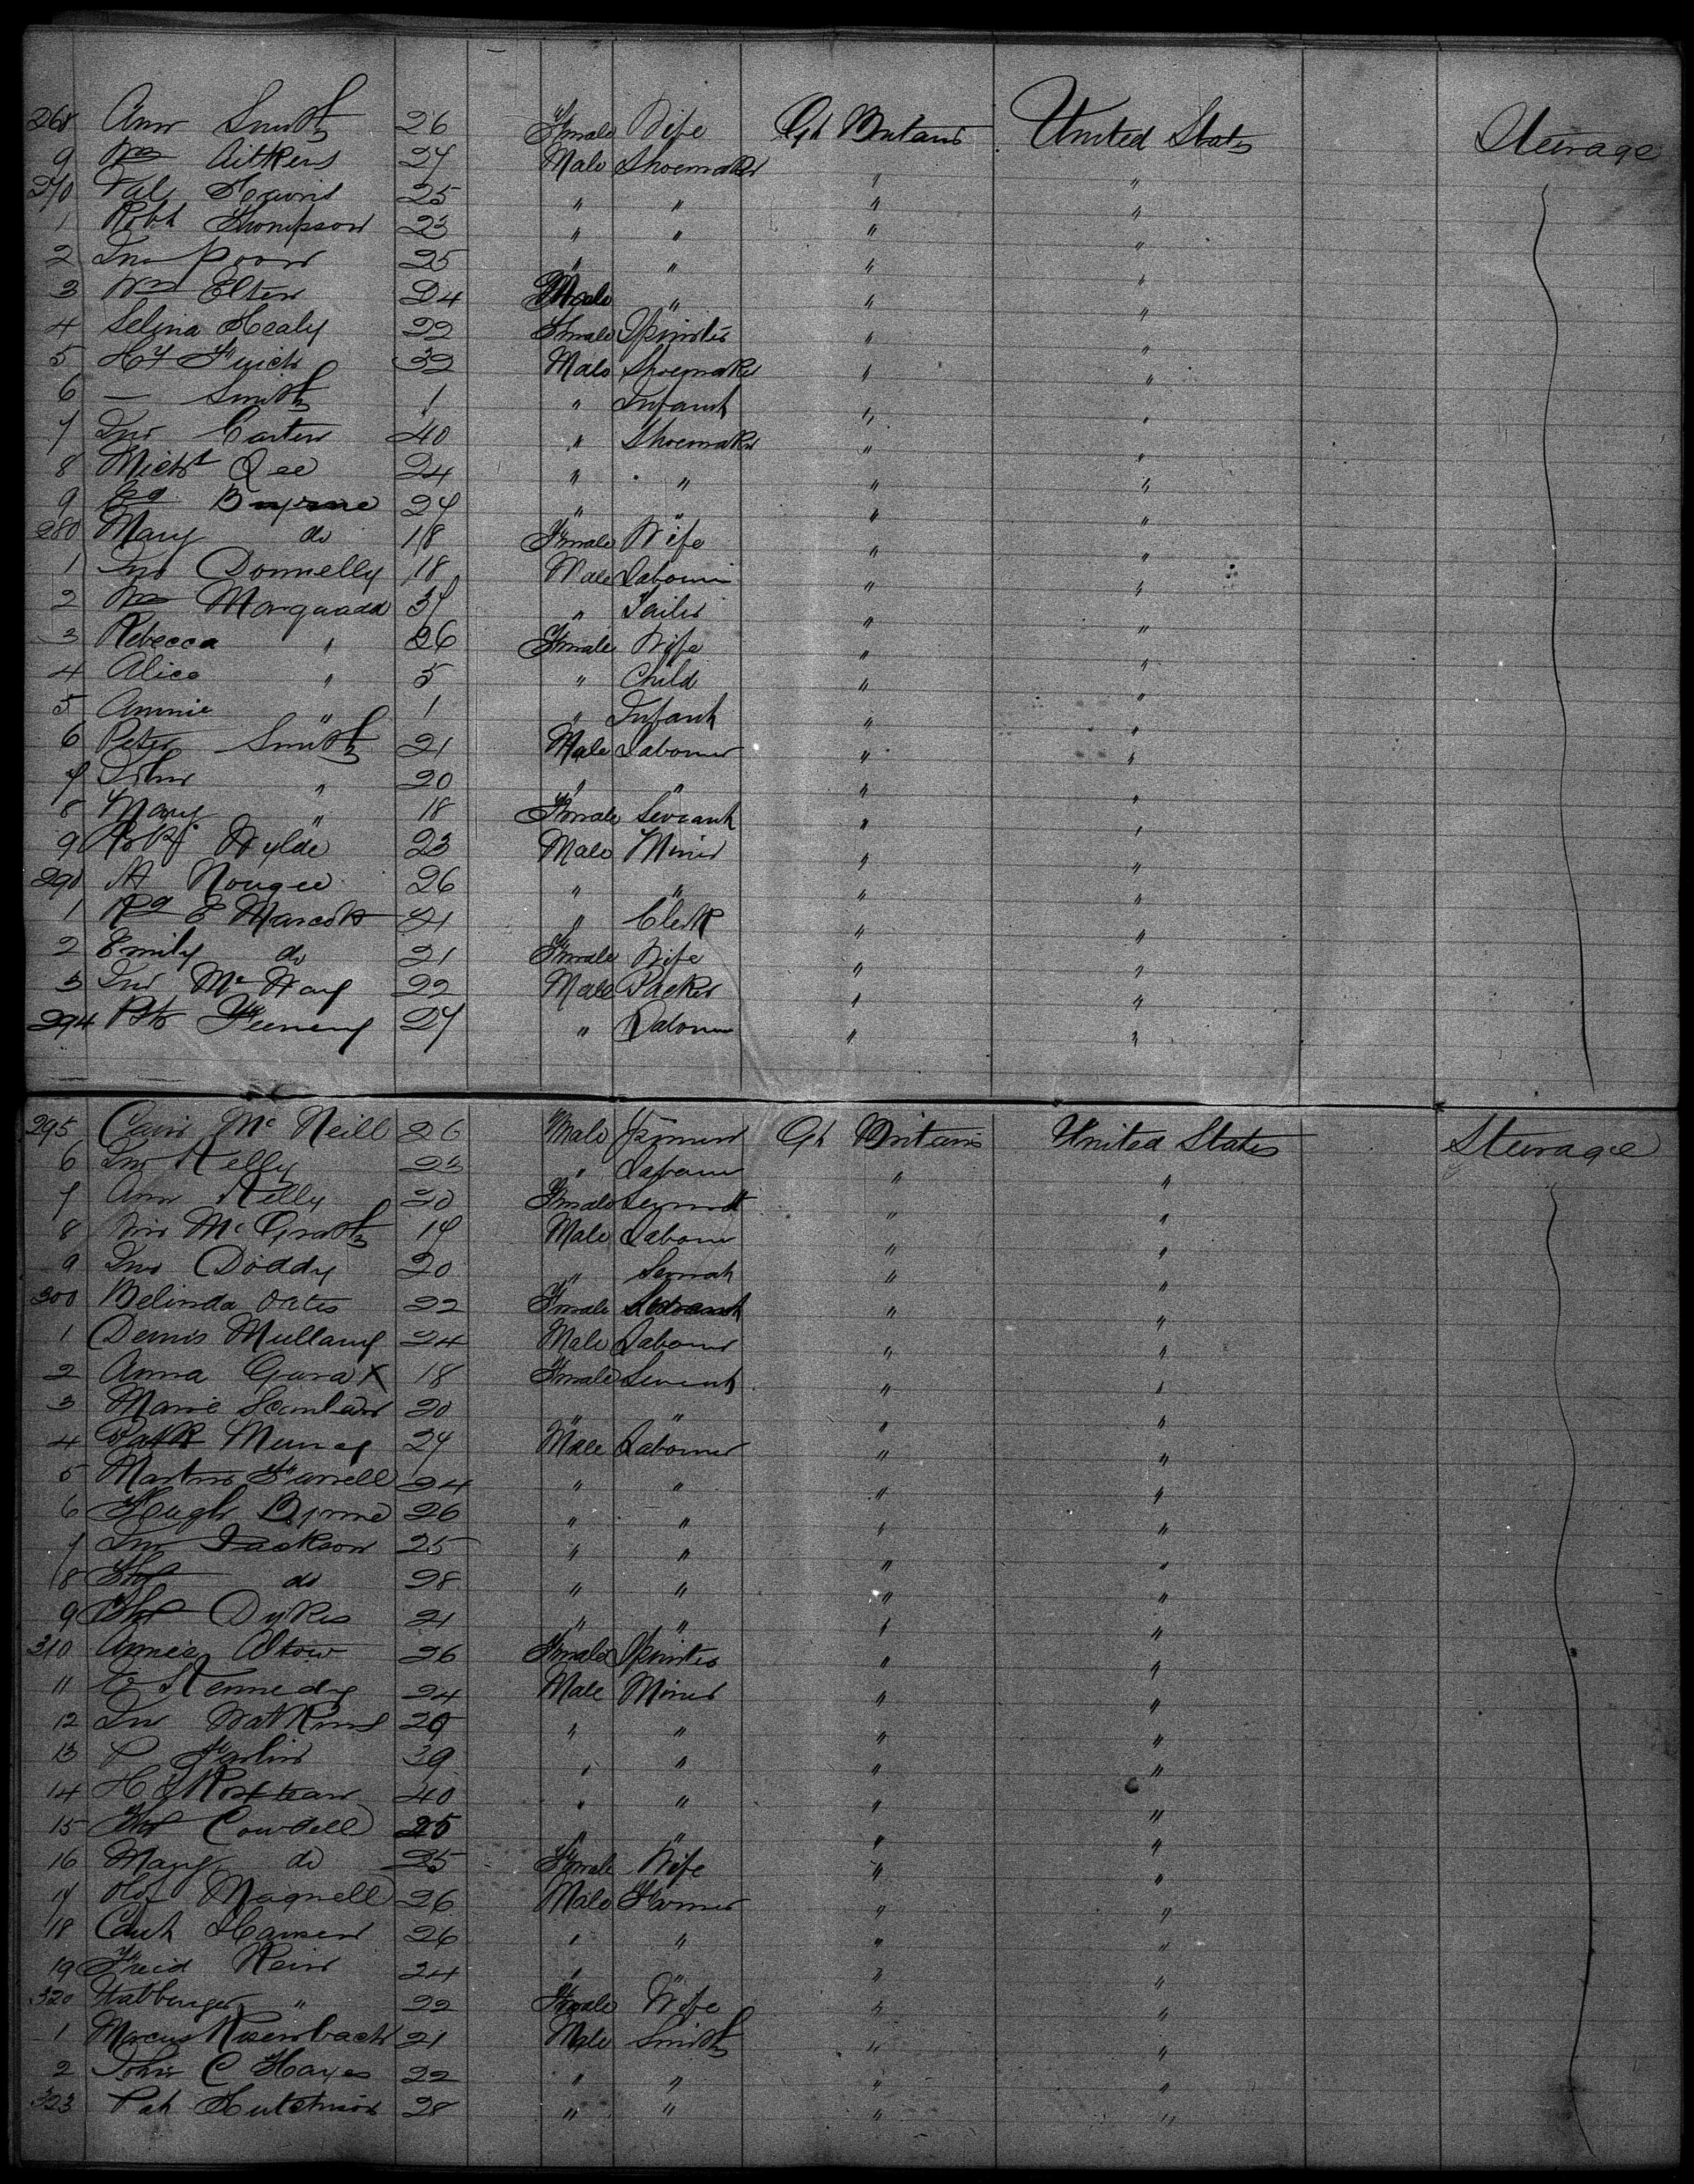 268 Ann Smith 26 Female Wife Gt Britain United States Steerage
9 Wm Aitkens 24 Male Shoemaker " "
270 Val 25 " " " "
1 Robt Thompson 23 " " " "
2 Jno Poor 25 " " " "
3 Wm Elten 24 Male " " "
4 Selina Healy 22 Female Spinster " "
5 Hy 32 Male Shoemaker " "
6 — Smith 1 " Infant " "
7 Jno Carter 40 " Shoemaker " "
8 Michl 24 " " " "
9 Byrne 24 " " " "
280 Mary do 18 Female Wife " "
1 Jno Donnelly 18 Male Labourer " "
2 Wm 37 " Tailor " "
3 Rebecca " 26 Female Wife " "
4 Alice " 5 " Child " "
5 Annie " 1 " Infant " "
6 Peter Smith 21 Male Labourer " "
7 John " 20 " " " "
8 Mary " 18 Female Servant " "
9 Wylde 23 Male Miner " "
290 26 " " " "
1 " Clerk " "
2 Emily do 21 Female Wife " "
3 Jno 22 Male Packer " "
294 Feeney 27 " Labourer " "
295 McNeill 26 Male Gt Britain United States Steerage
6 Jno Kelly 23 " Labourer " "
7 Ann Kelly 20 Female Servant " "
8 Wm McGrath 17 Male Labourer " "
9 Jno Doddy 20 " Servant " "
300 Belinda Oates 22 Female Servant " "
1 Dennis Mullany 24 Male Labourer " "
2 Anna Gara X 18 Female Servant " "
3 Marie Scanlan 20 " " " "
4 Patk 27 Male Labourer " "
5 Martin Farrell 24 " " " "
6 Hugh Byrne 26 " " " "
7 Jno Jackson 25 " " " "
8 Thos do 28 " " " "
9 Thos Dykes 21 " " " "
310 Annie 26 Female Spinster " "
11 E Kennedy 24 Male Miner " "
12 Jno Watkins 29 " " " "
13 P 39 " " " "
14 H 40 " " " "
15 Thos Cowdell 25 " " " "
16 Mary do 25 Female Wife " "
17 Olof Magnell 26 Male Farmer " "
18 Hansen 26 " " " "
19 24 " " " "
320 " 22 Female Wife " "
1 Marcus Rosenbach 21 Male Smith " "
2 John C Hayes 22 " " " "
323 Pat Hutchinson 28 " " " "